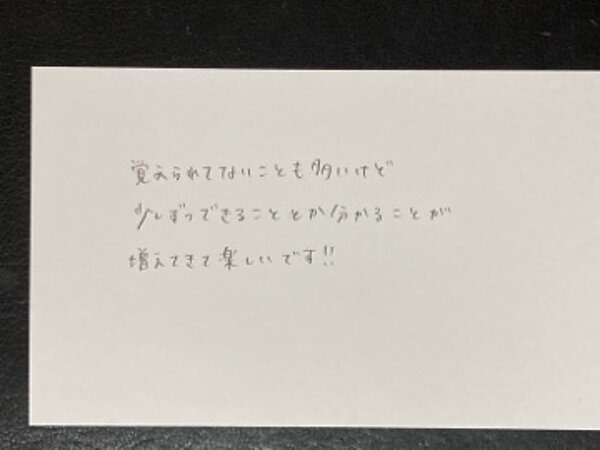 覚えられてないことも多いけど
少しずつできることとか分かることが
増えてきて楽しいです!!